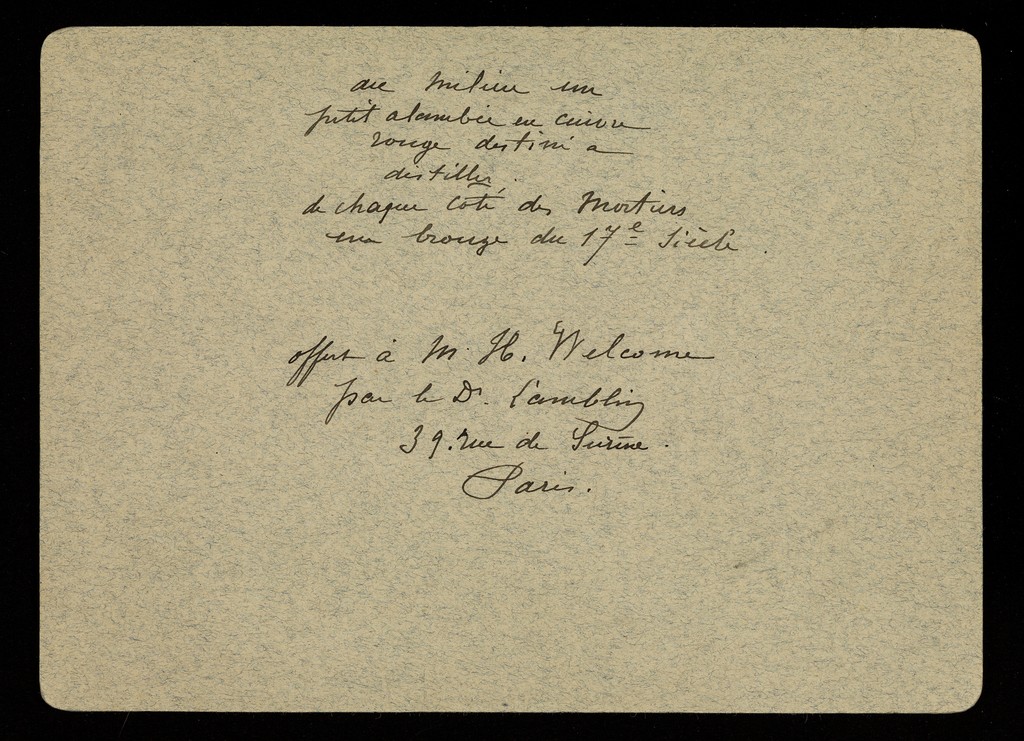 au milieu un
petit alambic en cuivre
rouge destiné a
distiller.
de chaque côté des Mortiers
en bronze du 17e Siècle.
offert à M. H. Welcome
par le Dr. Lamblin
39. rue de Surène.
Paris.